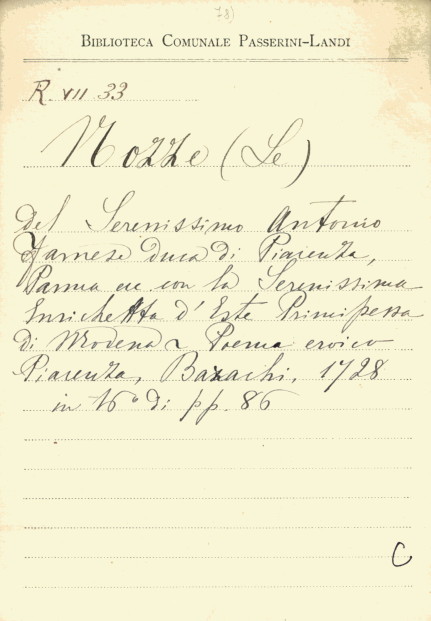 78)
BIBLIOTECA COMUNALE PASSERINI-LANDI
R. VII 33
Nozze (Le)
del Serenissimo Antonio
Farnese duca di Piacenza,
Parma ec con la Serenissima
Enrichetta d'Este Principessa
di Modena Poema eroico
Piacenza, Bazachi, 1728
in 16° di pp. 86
C